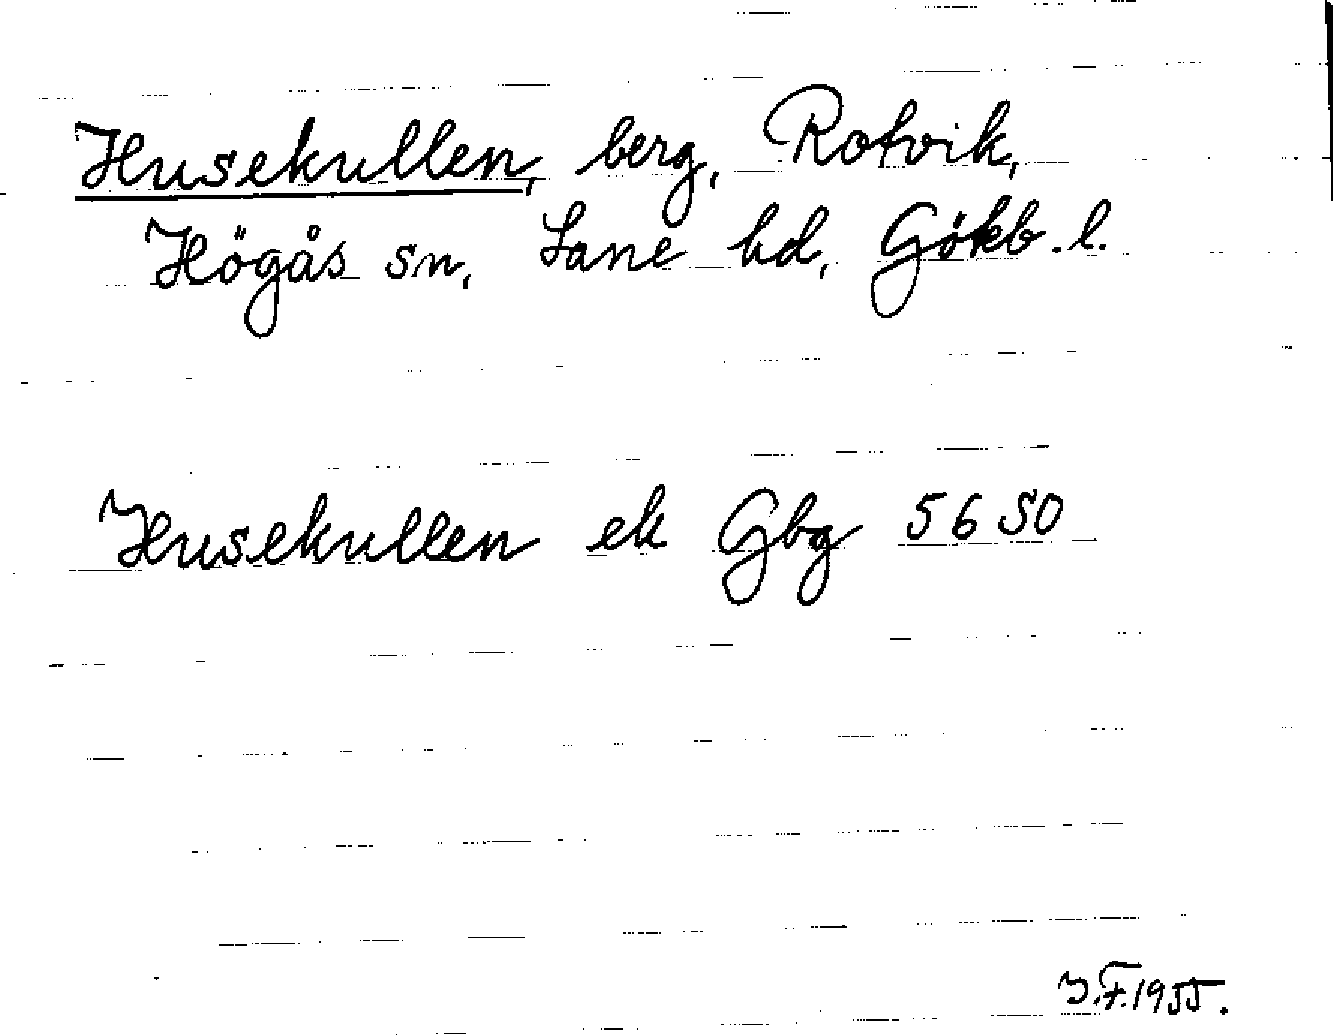 Husekullen, berg, Rotvik,
Högås sn, Lane hd, Gökb. l.
Husekullen ek Gbg 56 SO
1955.